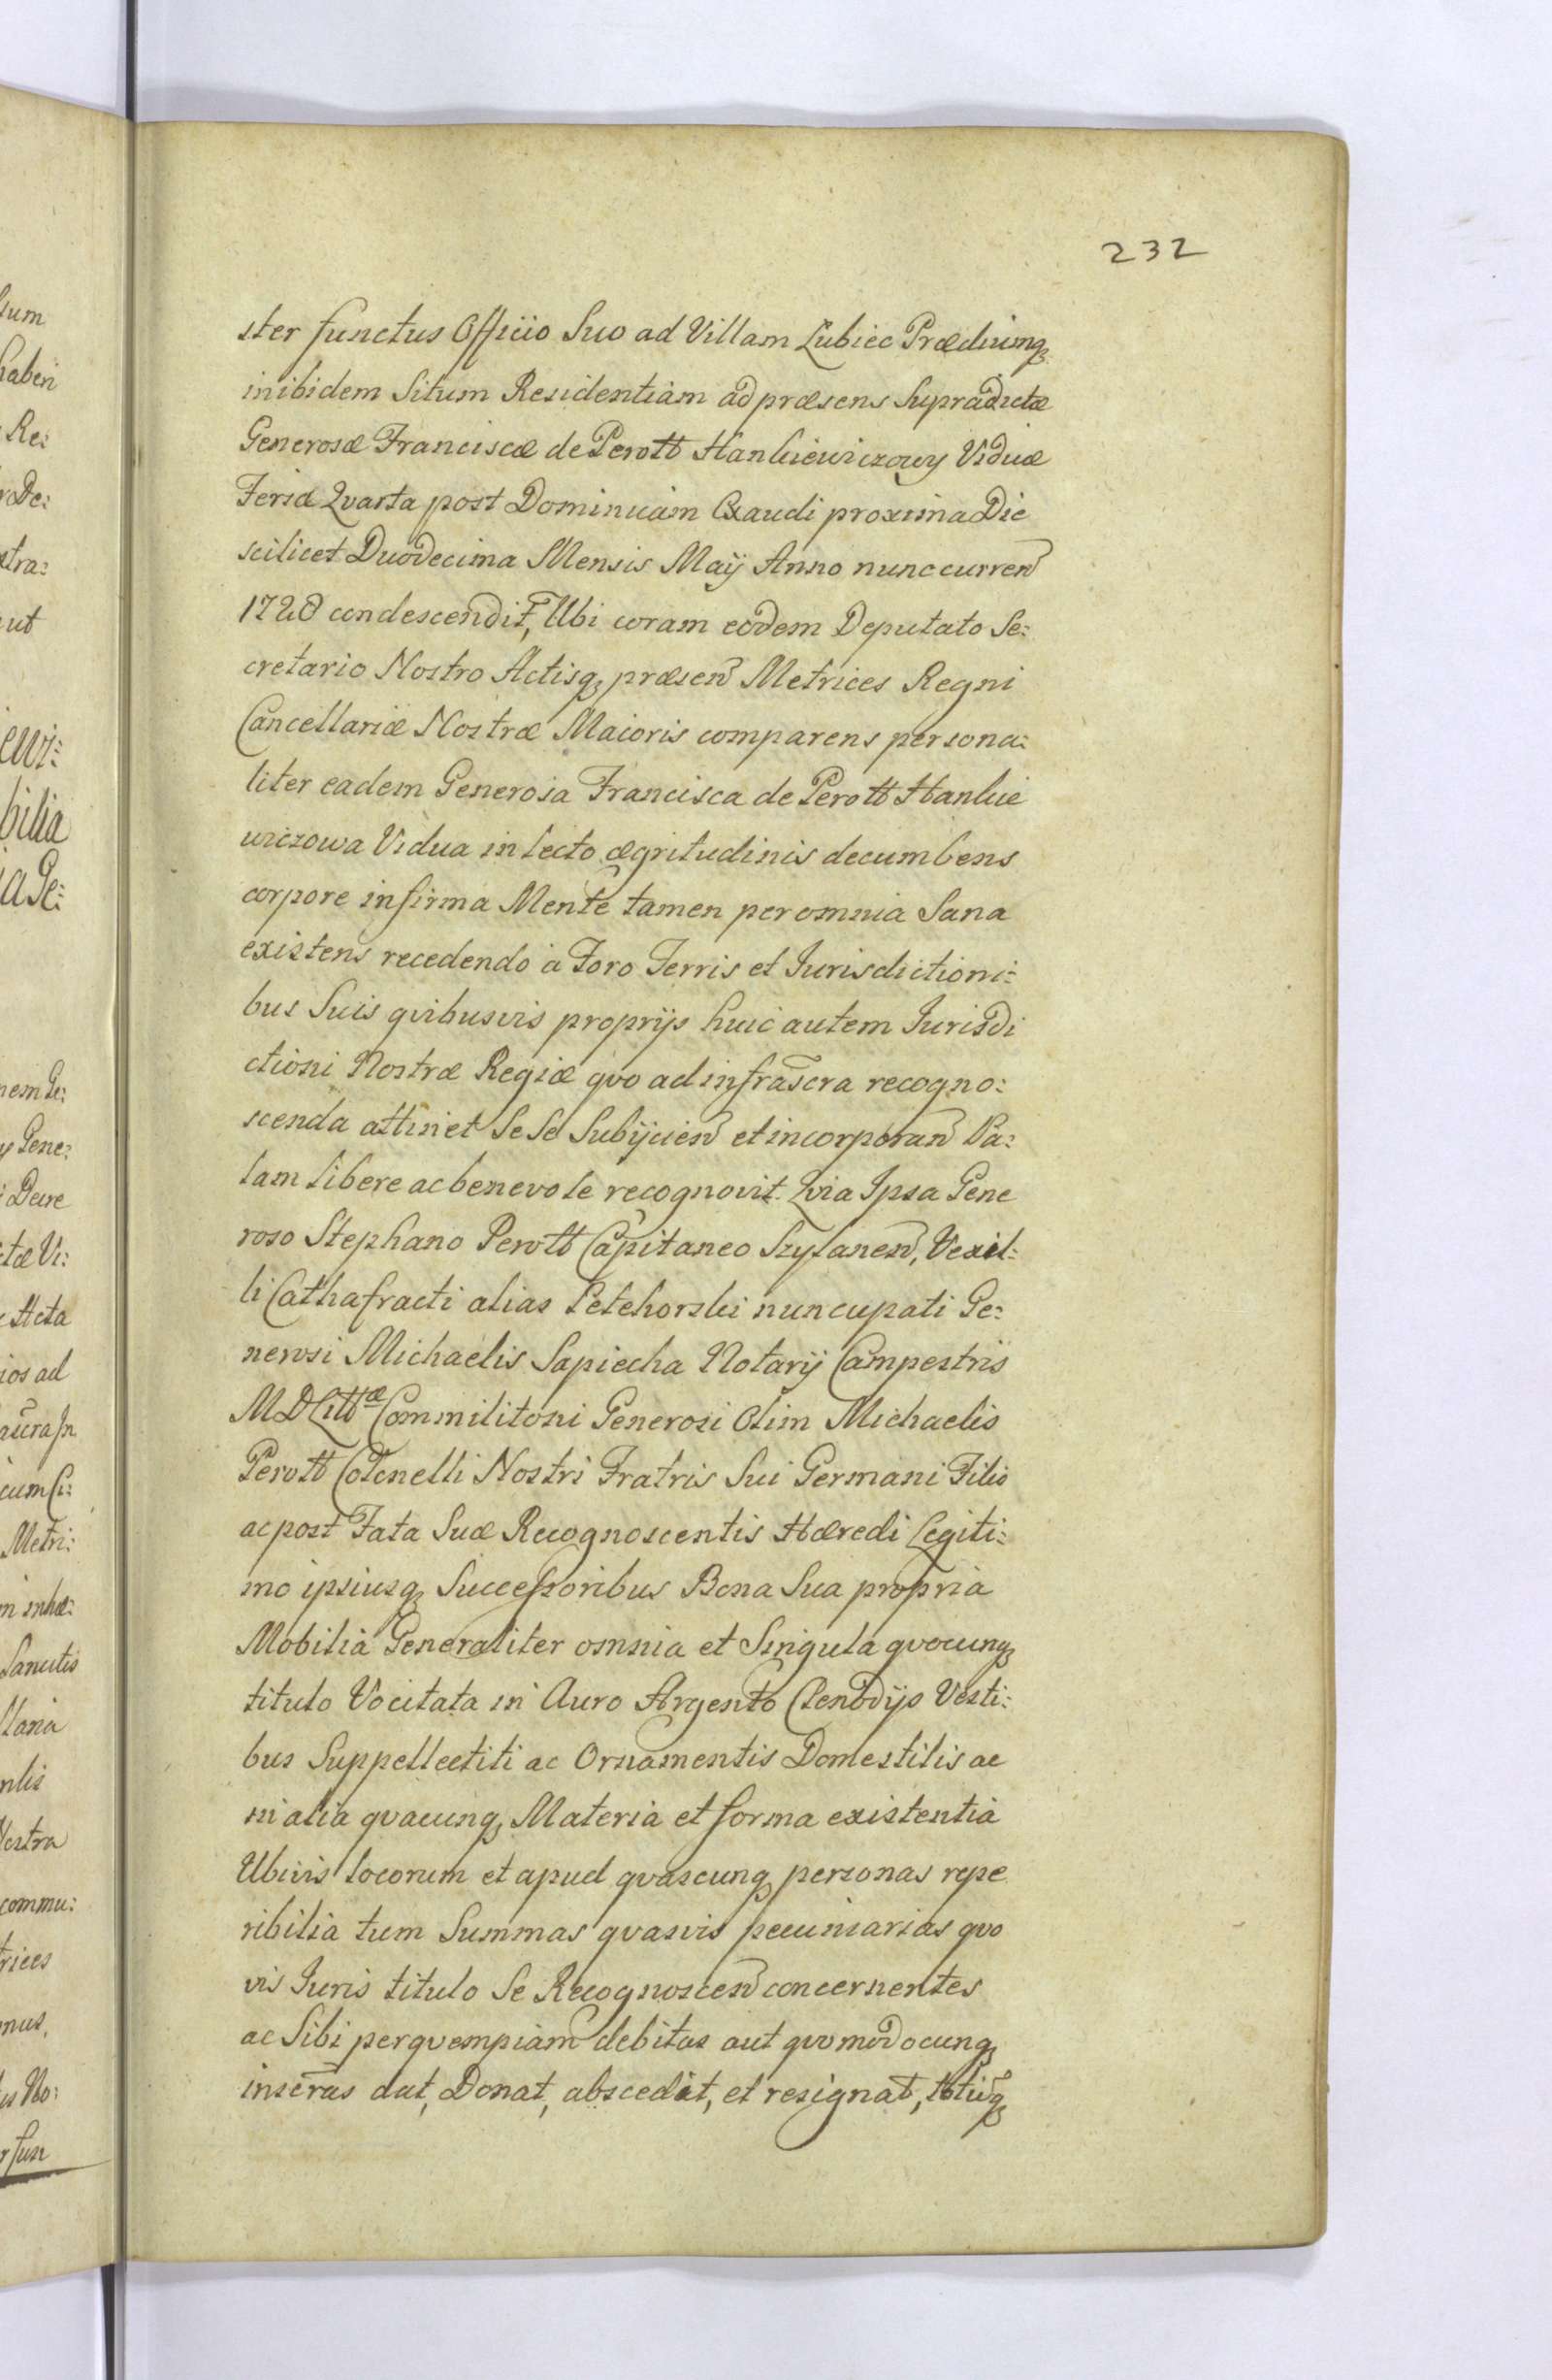 232
ster functus Officio Suo ad Villam Lubiec Prædiumq́₃
inibidem Situm Residentiam ad præsens Supradictæ
Generosæ Franciscæ de Perott Hankiewiczowy Viduæ
Feria Qvarta post Dominicam Exaudi proxima Die
scilicet Duodecima Mensis Maÿ Anno nunc curren̄
1728 condescendit, Ubi coram eodem Deputato Se:
cretario Nostro Actisq₃ præsen̄ Metrices Regni
Cancellariæ Nostræ Maioris comparens persona:
liter eadem Generosa Francisca de Perott Hankie
wiczowa Vidua in lecto ægritudinis decumbens
corpore infirma Mente tamen per omnia Sana
existens recedendo à Foro Terris et Jurisdictioni:
bus Suis qvibusvis proprijs huic autem Jurisdi
ctioni Nostræ Regiæ qvo ad infrãscra recogno:
scenda attinet Se Se Subijcien̄ et incorporan̄ Pa:
lam libere ac benevole recognovit. Qvia Ipsa Gene
roso Stephano Perott Capitaneo Szylanen̄, Vexil:
li Cathafracti alias Petehorski nuncupati Ge:
nerosi Michaelis Sapiecha Notarij Campestris
M D Littæ Commilitoni Generosi Olim Michaelis
Perott Colonelli Nostri Fratris Sui Germani Filio
ac post Fata Suæ Recognoscentis Hæredi Legiti:
mo ipsiusq₃ Successoribus Bona Sua propria
Mobilia Generaliter omnia et Singula qvocunq₃
titulo Vocitata in Auro Argento Clenodijs Vesti:
bus Suppellectili ac Ornamentis Domestilis ac
in alia qvacunq₃ Materia et forma existentia
Ubivis locorum et apud qvascunq₃ personas repe
ribilia tum Summas qvasvis pecuniarias qvo
vis Juris titulo Se Recognoscen̄ concernentes
ac Sibi per qvempiam debitas aut qvomodocunq₃
inscr̄as dat, Donat, abscedit, et resignat,